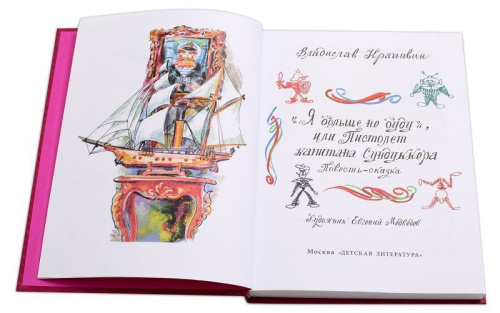 Владислав Крапивин
"Я больше не буду",
или Пистолет
капитана Сундуккора
Повесть-сказка
Художник Евгений Медведев
Москва «ДЕТСКАЯ ЛИТЕРАТУРА»